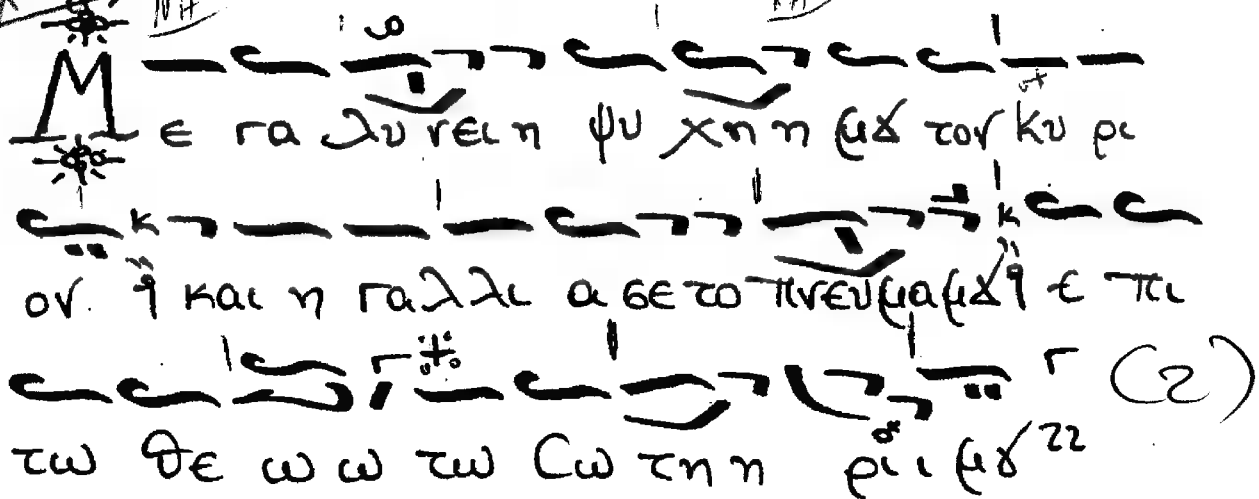 Με γα λυ νει η ψυ χη η μȣ τον Κυ ρι
ον. και η γαλλι α σε το πνευμα μȣ ε πι
τω θε ω ω τω Σω τη η ρι ι μȣ
(2)